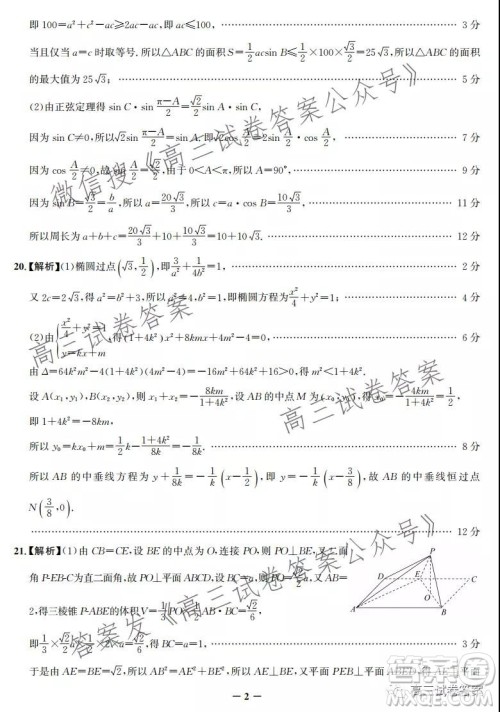 即 100=a²+c²-ac≥2ac-ac,即 ac≤100, 3 分
当且仅当 a=c 时取等号.所以△ABC 的面积 S=1/2 acsin B≤1/2×100×√3/2=25√3,所以△ABC 的面积
的最大值为 25√3; 5 分
(2)由正弦定理得 sin C·sin (π-A)/2=√2/2 sin A·sin C,
因为 sin C≠0,所以√2 sin (π-A)/2=sin A,
因为 cos A/2≠0,故 sin A/2=√2/2,由于 0<A<π,所以 A=90°, 8 分
因为 sin B=√3/2=b/a,所以 a=20√3/3,所以 c=a·cos B=10√3/3, 11 分
所以周长为 a+b+c=20√3/3+10+10√3/3=10+10√3. 12 分
20.【解析】(1)椭圆过点(√3,1/2),即 3/a²+1/4b²=1, 2 分
又 2c=2√3,得 a²=b²+3,所以 a²=4,b²=1,即椭圆方程为 x²/4+y²=1; 4 分
(2)由{x²/4+y²=1, y=kx+m 得(1+4k²)x²+8kmx+4m²-4=0, 6 分
由 Δ=64k²m²-4(1+4k²)(4m²-4)=16+64k²-16m²>0,得 m²<1+4k².
设 A(x₁,y₁),B(x₂,y₂),则 x₁+x₂=-8km/(1+4k²).设 AB 的中点 M 为(x₀,y₀),得 x₀=-4km/(1+4k²)=1/2,
即 1+4k²=-8km, 8 分
所以 y₀=kx₀+m=1/2 k-(1+4k²)/8k=-1/8k.
所以 AB 的中垂线方程为 y+1/8k=-1/k(x-1/2),即 y=-1/k(x-3/8),故 AB 的中垂线恒过点
N(3/8,0). 12 分
21.【解析】(1)由 CB=CE,设 BE 的中点为 O,连接 PO,则 PO⊥BE,又二面
角 P-EB-C 为直二面角,故 PO⊥平面 ABCD,设 BC=a,则 PO=√2/2 a,又 AB=
2,得三棱锥 P-ABE 的体积 V=1/3 PO·
即 1/3×√2/2 a× =√2/6,得 BC=a=1, 3 分
于是由 AE=BE=√2,所以 AE⊥BE,又平面 PEB⊥平面
— 2 —
微信搜《高三试卷答案公众号》
高三试卷答案
高三试卷答案
答案发《高三试卷答案公众号》
高三试卷答案
P
D
E
C
O
A
B